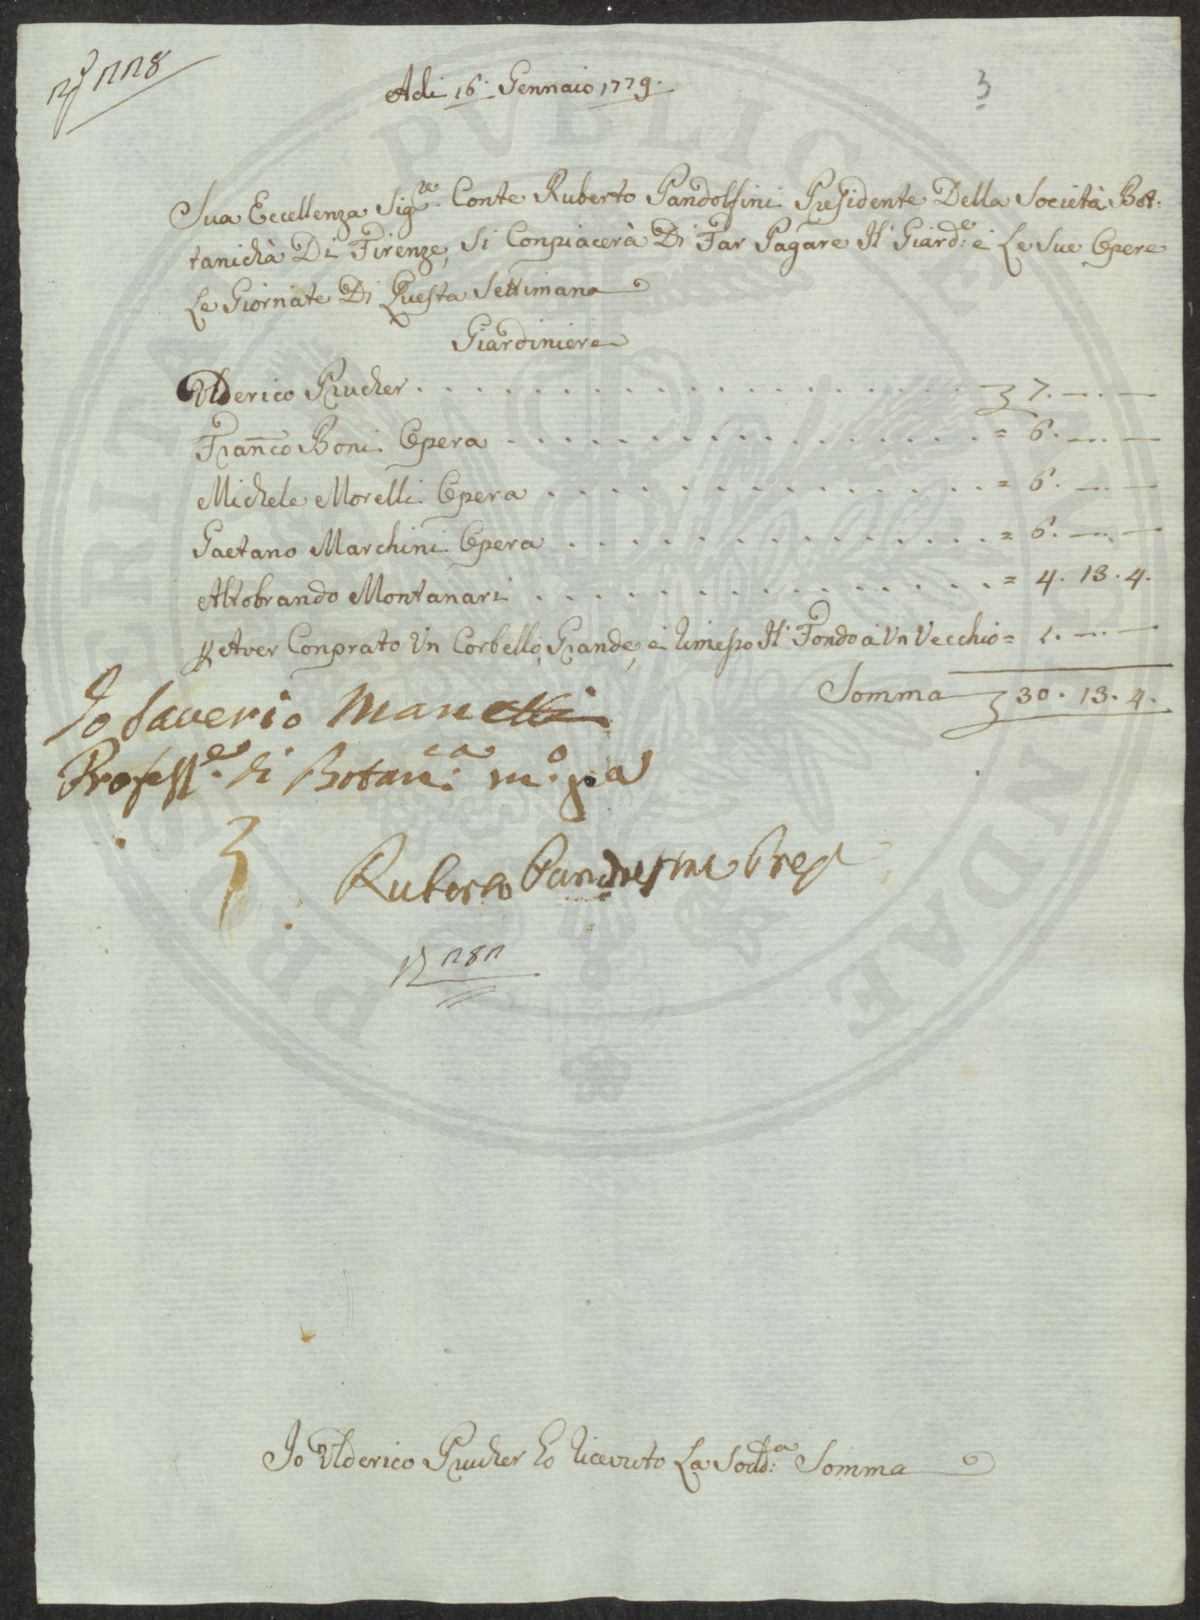 Adi 16. Gennaio 1779.
3
Sua Eccellenza Sig.re Conte Ruberto Pandolfini Presidente Della Società Bot:
tanichà Di Firenze, Si Conpiacerà Di Far Pagare Il Giard.e e Le Sue Opere
Le Giornate Di Questa Settimana
Giardiniere
Ulderico Prucher . . . . . . 7. — —
Franco Boni Opera . . . . . . = 6. — —
Michele Morelli Opera . . . . . . = 6. — —
Gaetano Marchini Opera . . . . . . = 6. — —
Altobrando Montanari . . . . . . = 4. 13. 4.
Aver Conprato Un Corbello Grande, e rimesso Il Fondo a Un Vecchio = 1. — —
Somma 30. 13. 4.
Io Saverio Manetti
Profess.e di Botan.ca m.o pa
Ruberto Pandolfini Pres
Io Ulderico Prucher ho ricevuto La Sodd.a Somma
PUBLICAE